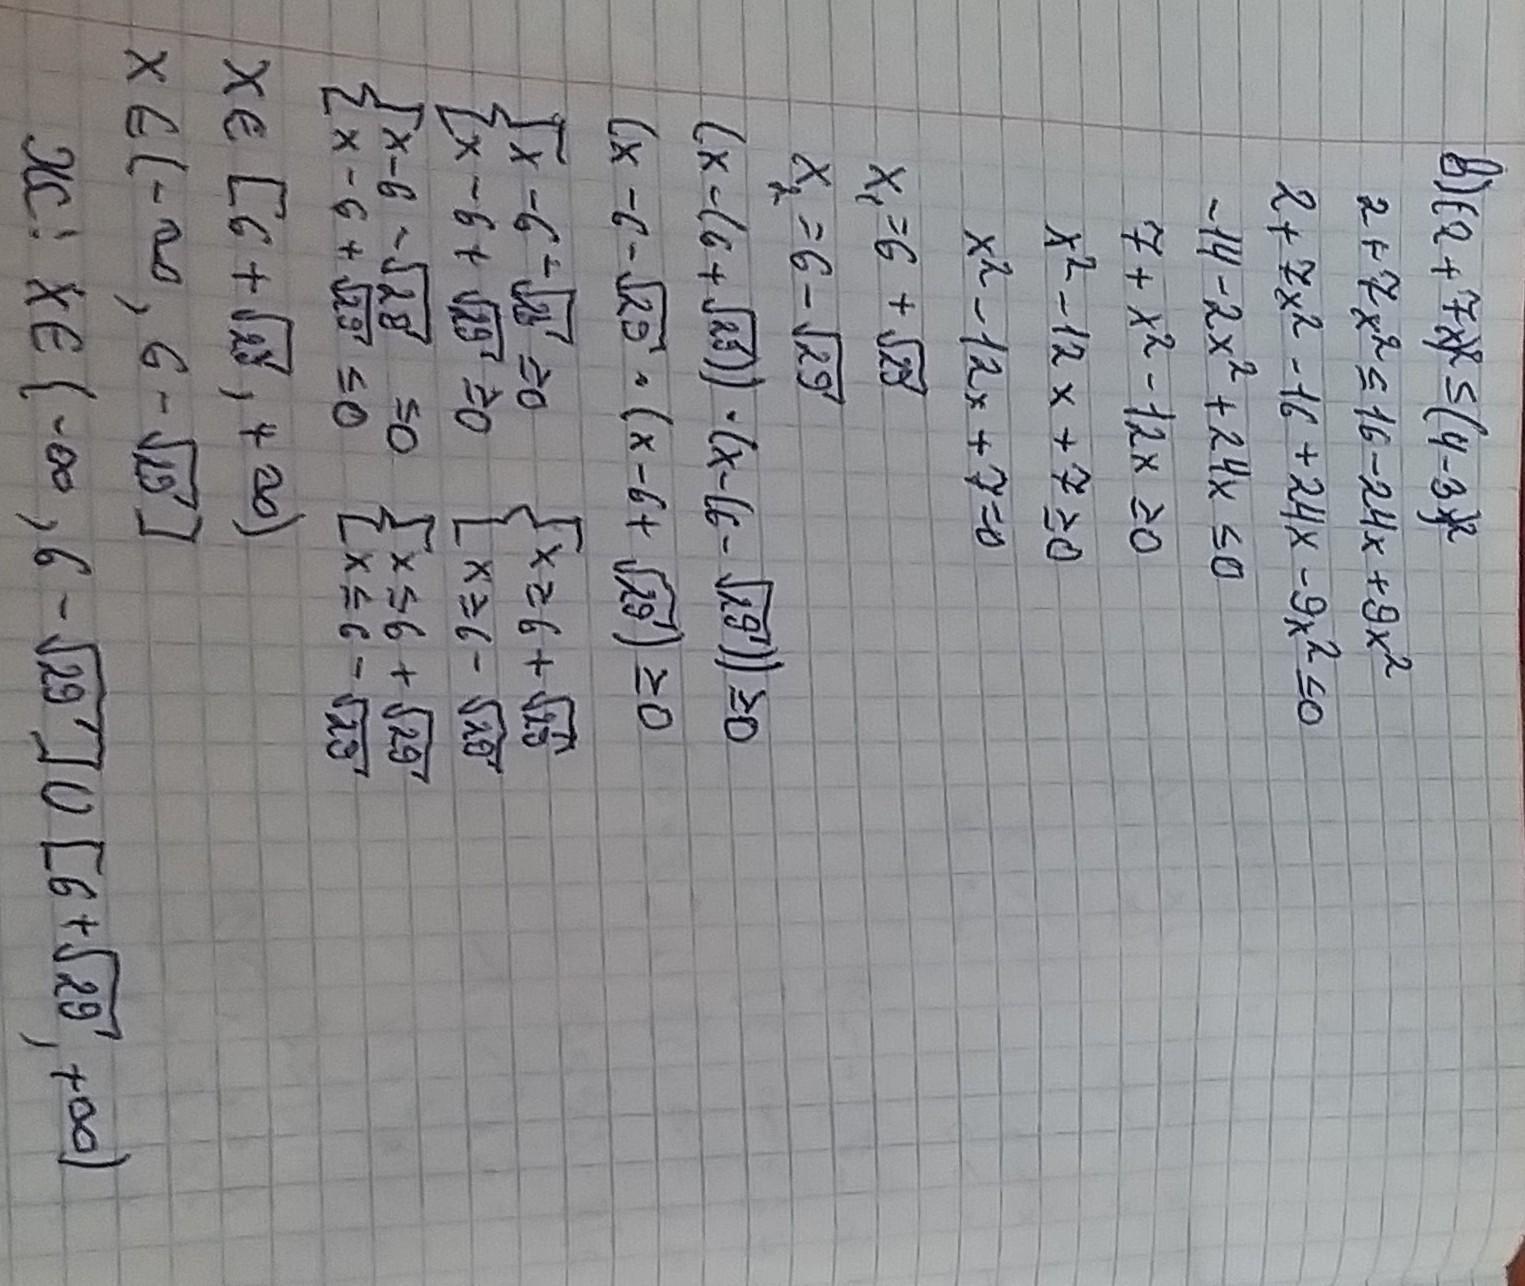 в) (2 + 7x)² ≤ (4 - 3x)²
2 + 7x² ≤ 16 - 24x + 9x²
2 + 7x² - 16 + 24x - 9x² ≤ 0
-14 - 2x² + 24x ≤ 0
7 + x² - 12x ≥ 0
x² - 12x + 7 ≥ 0
x² - 12x + 7 = 0
x₁ = 6 + √29
x₂ = 6 - √29
(x - (6 + √29)) · (x - (6 - √29)) ≥ 0
(x - 6 - √29 · (x - 6 + √29) ≥ 0
{ [ x - 6 - √29 ≥ 0 { [ x ≥ 6 + √29
[ x - 6 + √29 ≥ 0 [ x ≥ 6 - √29
{ [ x - 6 - √29 ≤ 0 { [ x ≤ 6 + √29
[ x - 6 + √29 ≤ 0 [ x ≤ 6 - √29
x ∈ [6 + √29, + ∞)
x ∈ (-∞, 6 - √29]
x ∈ (-∞, 6 - √29] U [6 + √29, +∞)